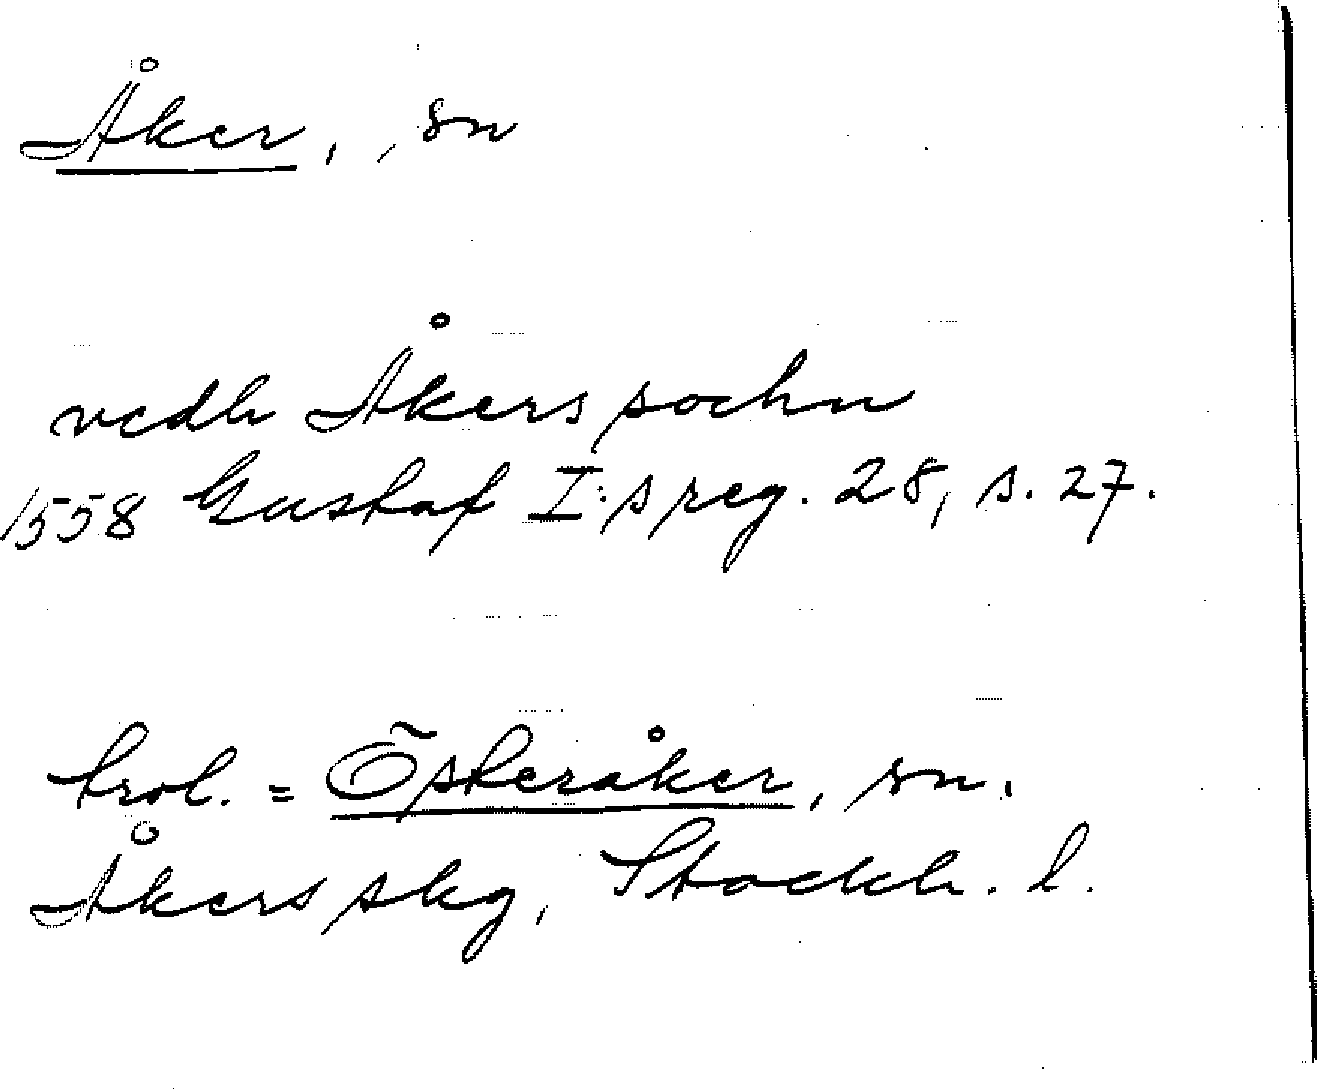 Åker, , sn
vedh Åkers sochn
1558 Gustaf I:s reg. 28, s. 27.
trol. = Österåker, sn.
Åkers skg, Stockh. l.